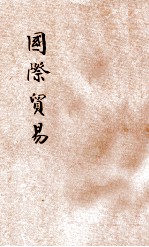 國際貿易